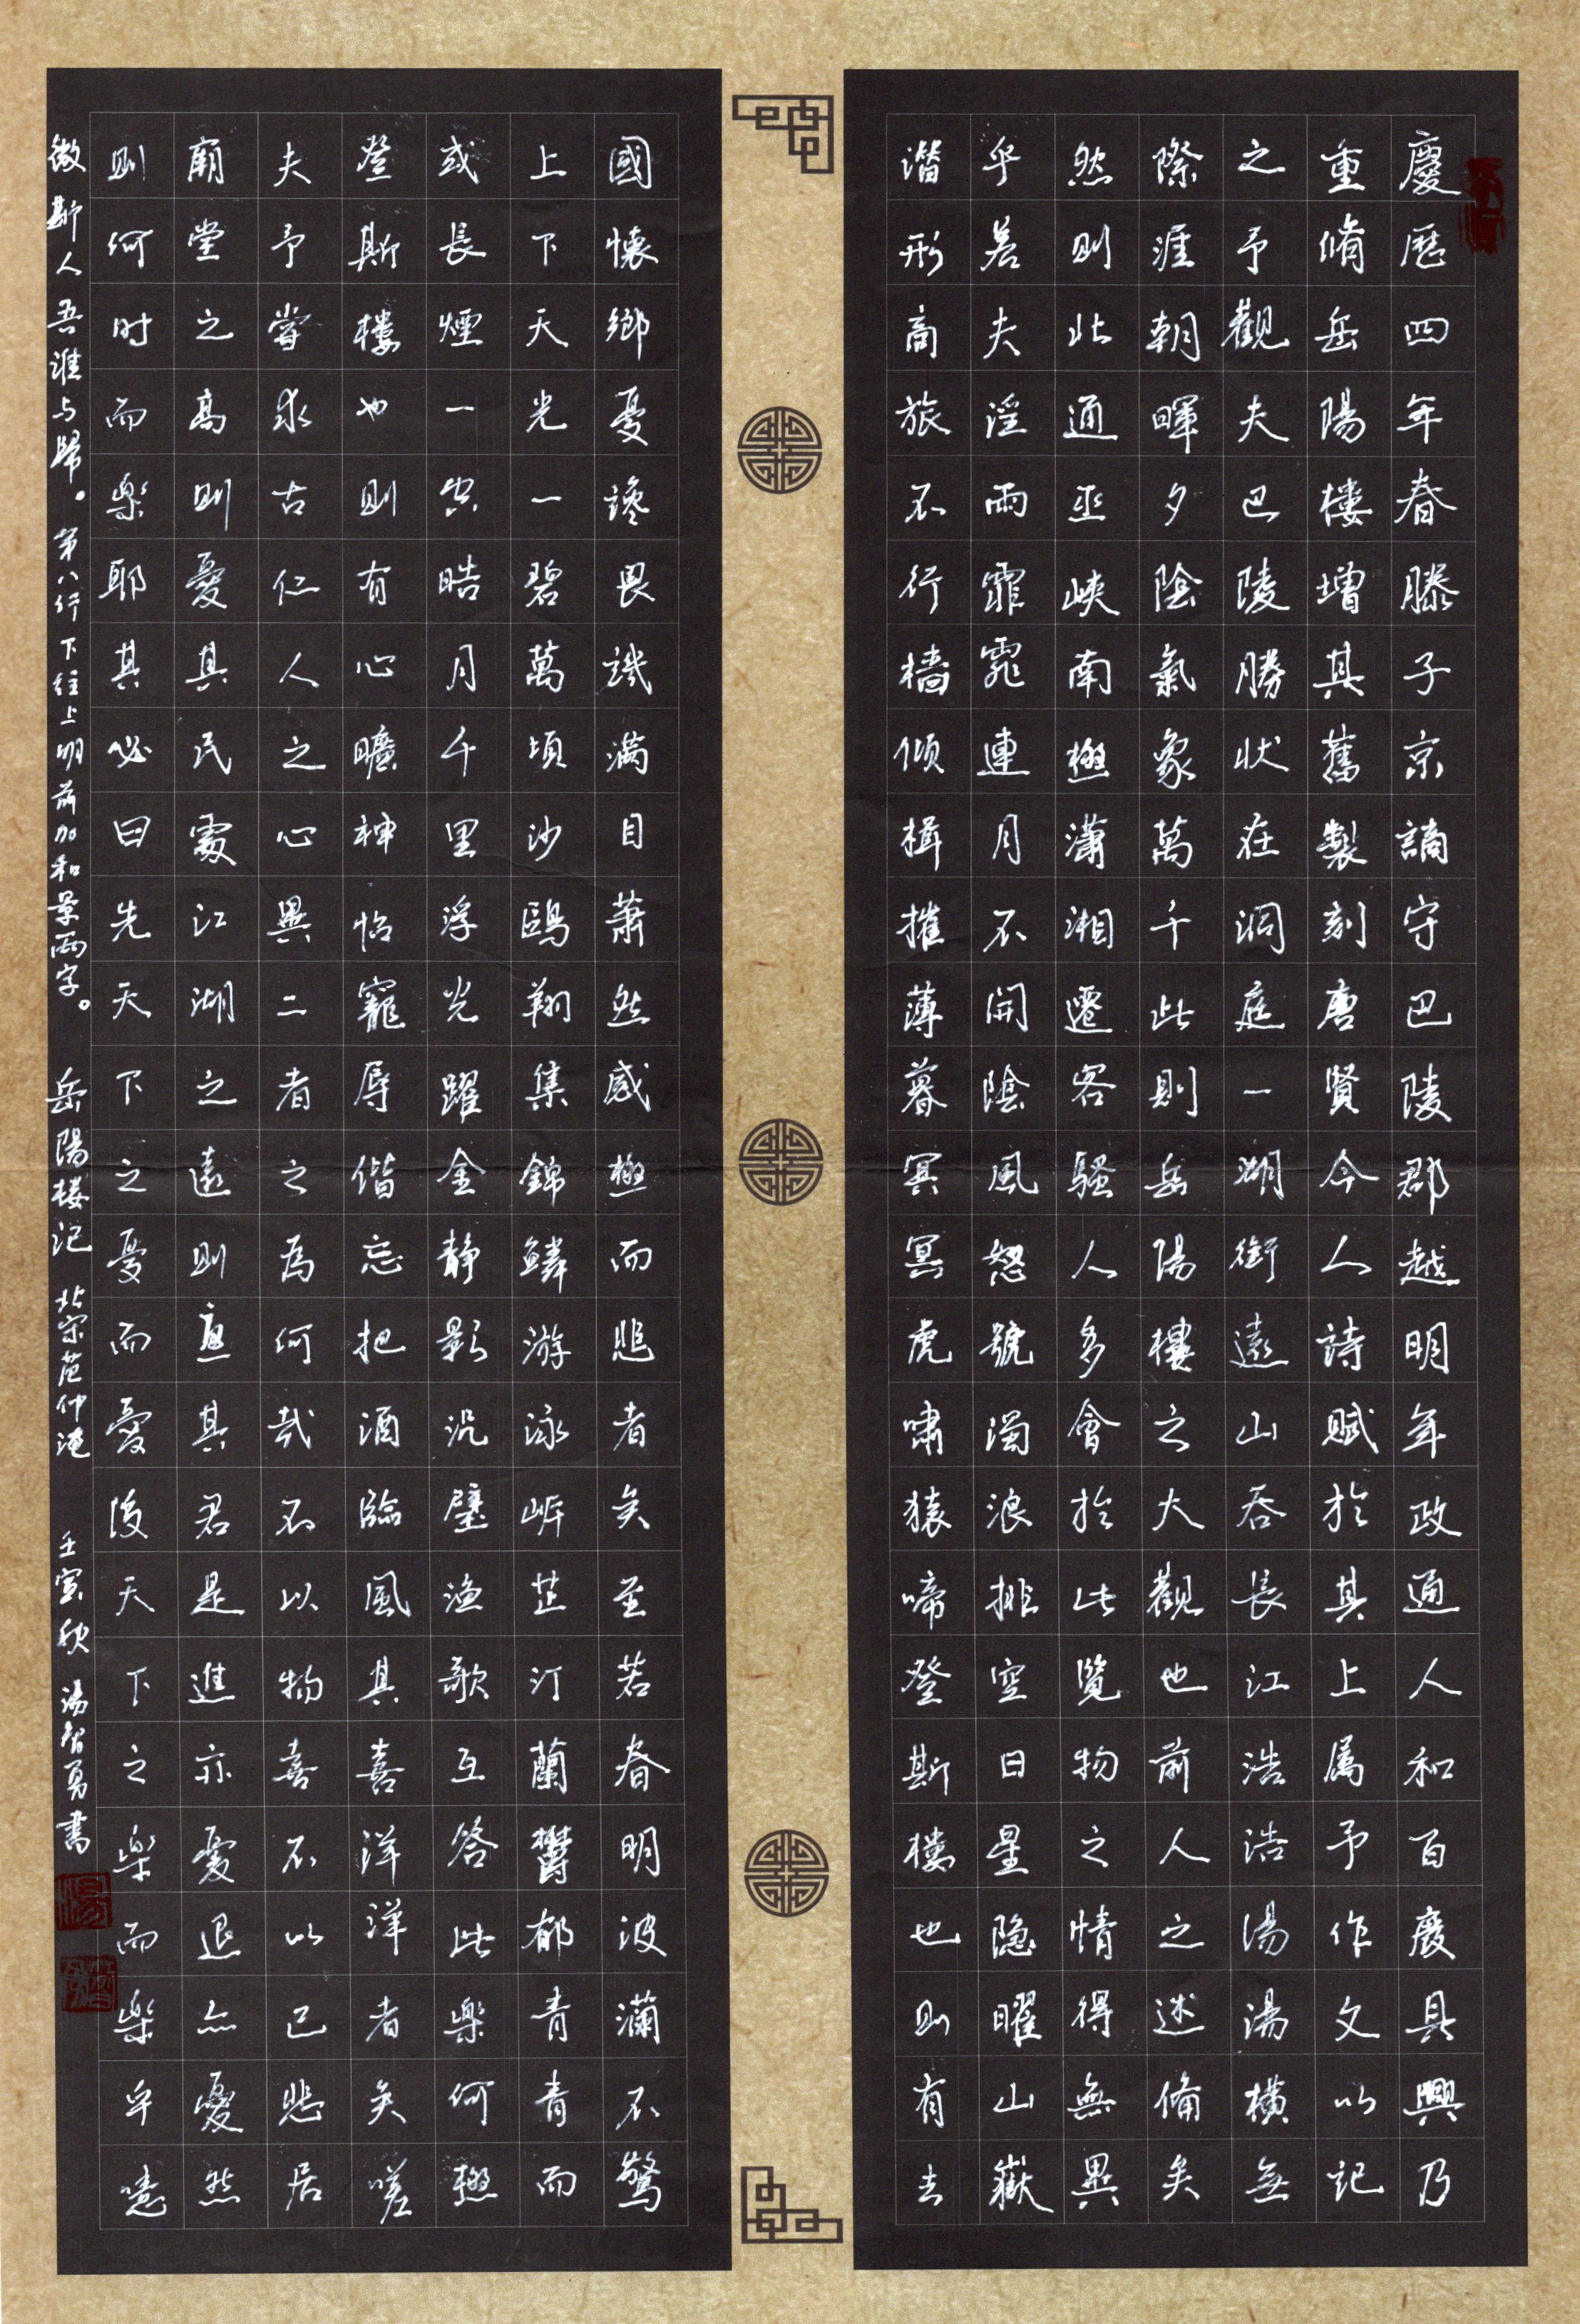 慶厯四年春滕子京謫守巴陵郡越明年政通人和百廢具興乃
重脩岳陽樓增其舊製刻唐賢今人詩賦於其上属予作文以記
之予觀夫巴陵勝狀在洞庭一湖銜遠山吞長江浩浩湯湯橫無
際涯朝暉夕陰氣象萬千此則岳陽樓之大觀也前人之述備矣
然則北通巫峽南極瀟湘遷客騷人多會於此覽物之情得無異
乎若夫淫雨霏霏連月不開陰風怒號濁浪排空日星隐曜山嶽
潛形商旅不行檣傾楫摧薄暮冥冥虎嘯猿啼登斯樓也則有去
國懷鄉憂讒畏譏滿目蕭然感極而悲者矣至若春明波瀾不驚
上下天光一碧萬頃沙鷗翔集錦鱗游泳岸芷汀蘭鬱郁青青而
或長煙一空皓月千里浮光躍金靜影沉璧漁歌互答此樂何極
登斯樓也則有心曠神怡寵辱偕忘把酒臨風其喜洋洋者矣嗟
夫予嘗求古仁人之心異二者之為何哉不以物喜不以己悲居
廟堂之高則憂其民處江湖之遠則憂其君是進亦憂退亦憂然
則何时而樂耶其必曰先天下之憂而憂後天下之樂而樂乎噫
微斯人吾谁与歸。第八行下往上明前加和景两字。 岳陽楼记 北宋范仲淹 壬寅秋 湯智勇書
湯
智勇